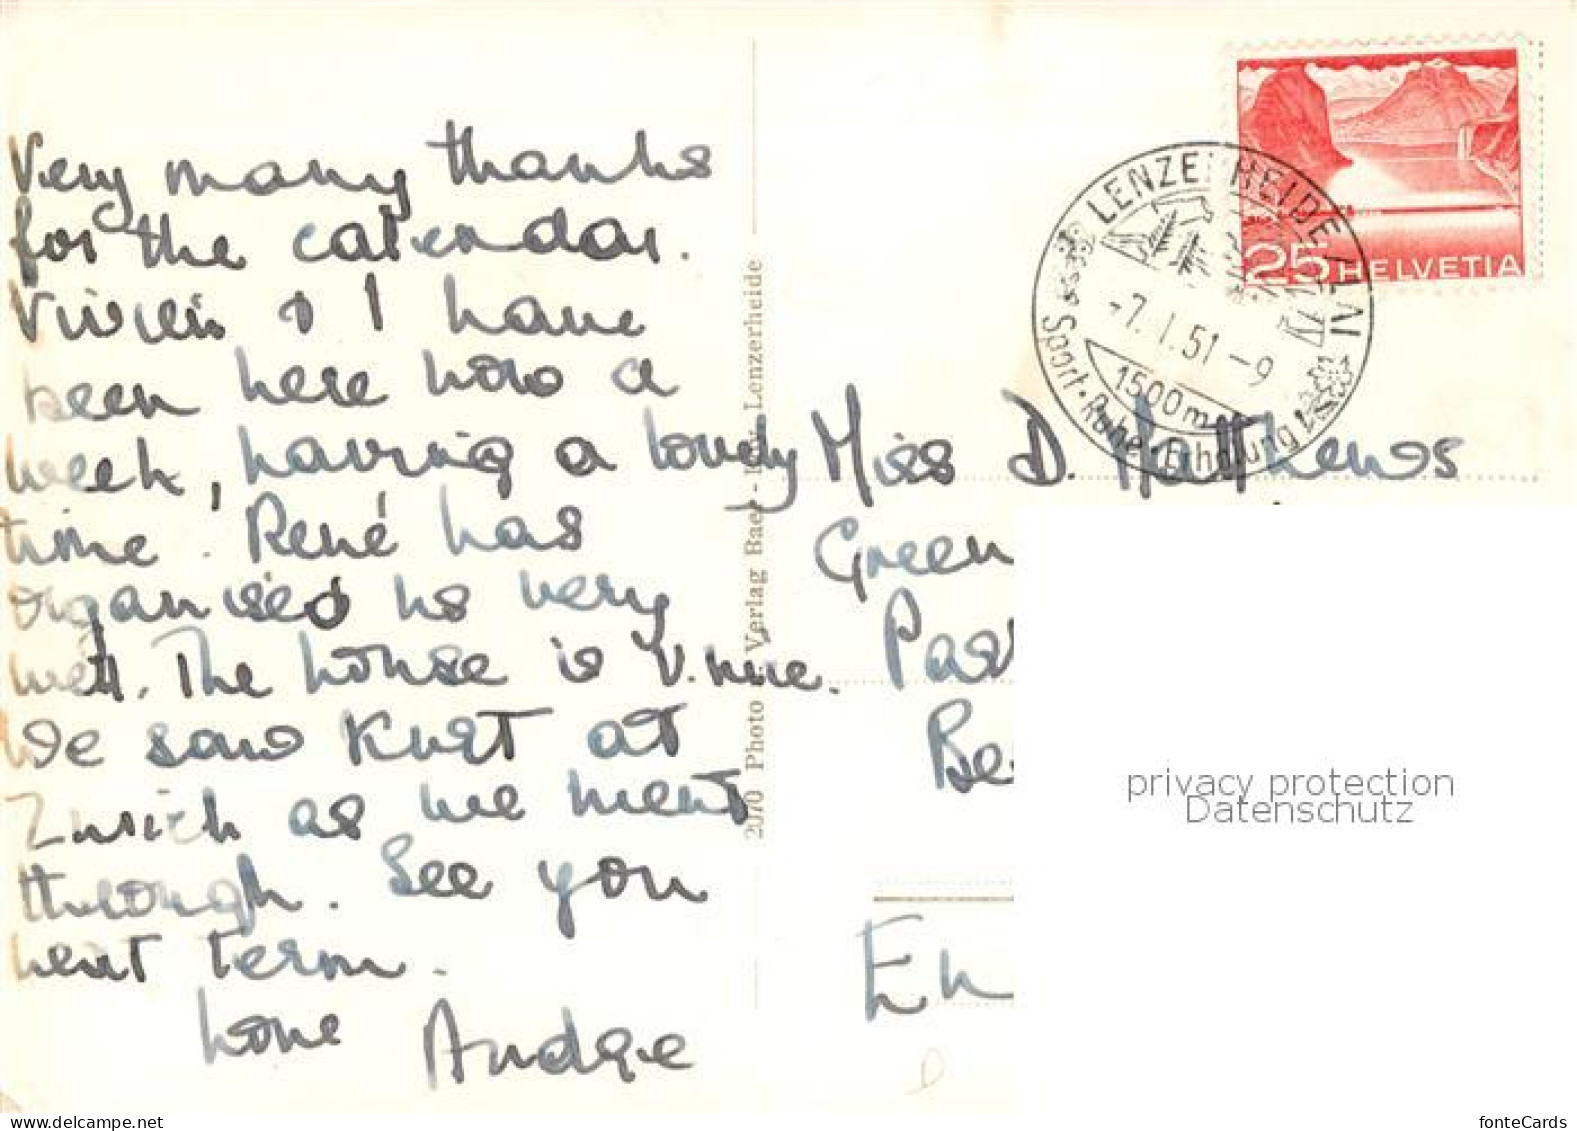 Very many thanks
for the calendar.
Vivien & I have
been here now a
week, having a lovely
time. René has
organised us very
well. The house is v. nice.
We saw Kurt at
Zurich as we went
through. See you
next term.
love Andrée
2070 Photo Verlag Baer - Lenzerheide
25 HELVETIA
LENZERHEIDE
-7. I. 51 -9
1500 m
Sport · Ruhe · Erholung
Miss D. Matthews
Green
Pas
Be
En
privacy protection
Datenschutz
www.delcampe.net
fonteCards